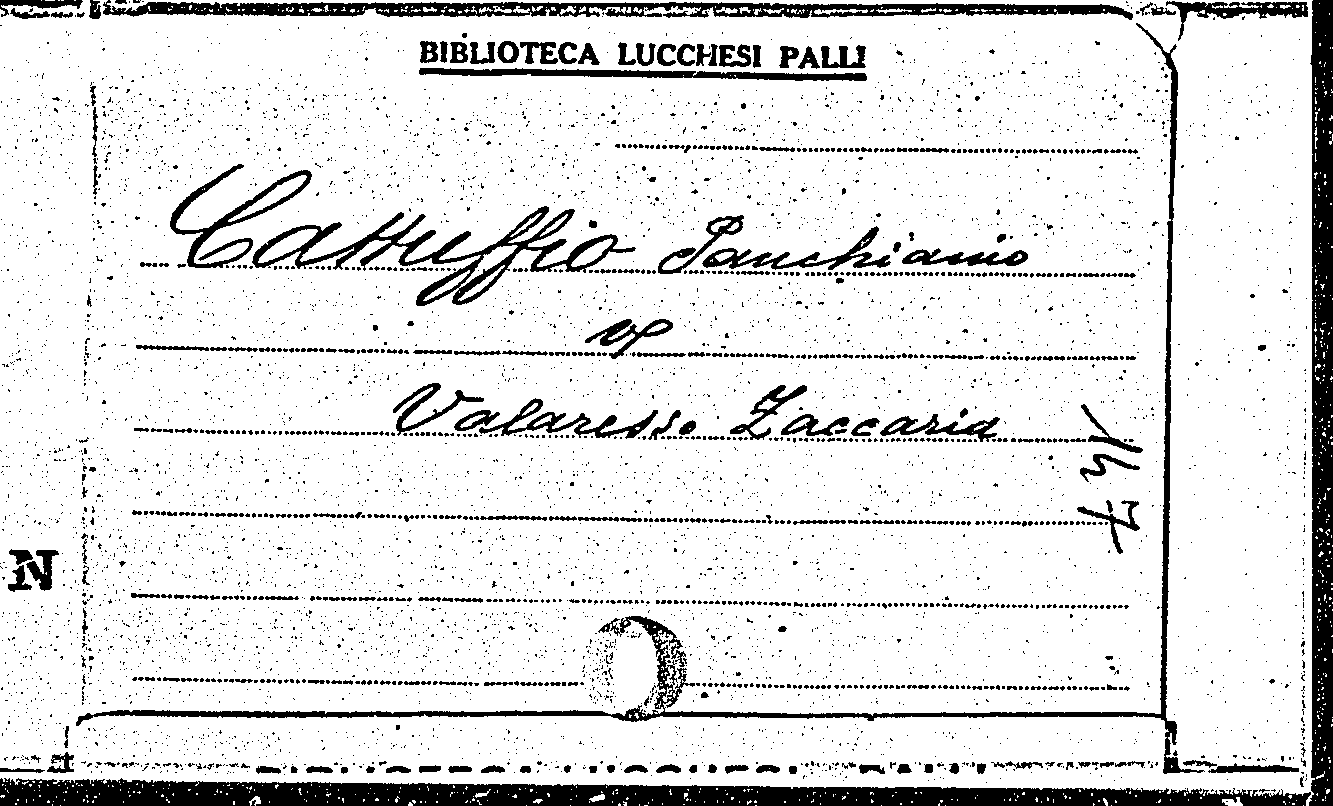 BIBLIOTECA LUCCHESI PALLI
Cattuffio Panchiano
v
Valaresso Zaccaria
N